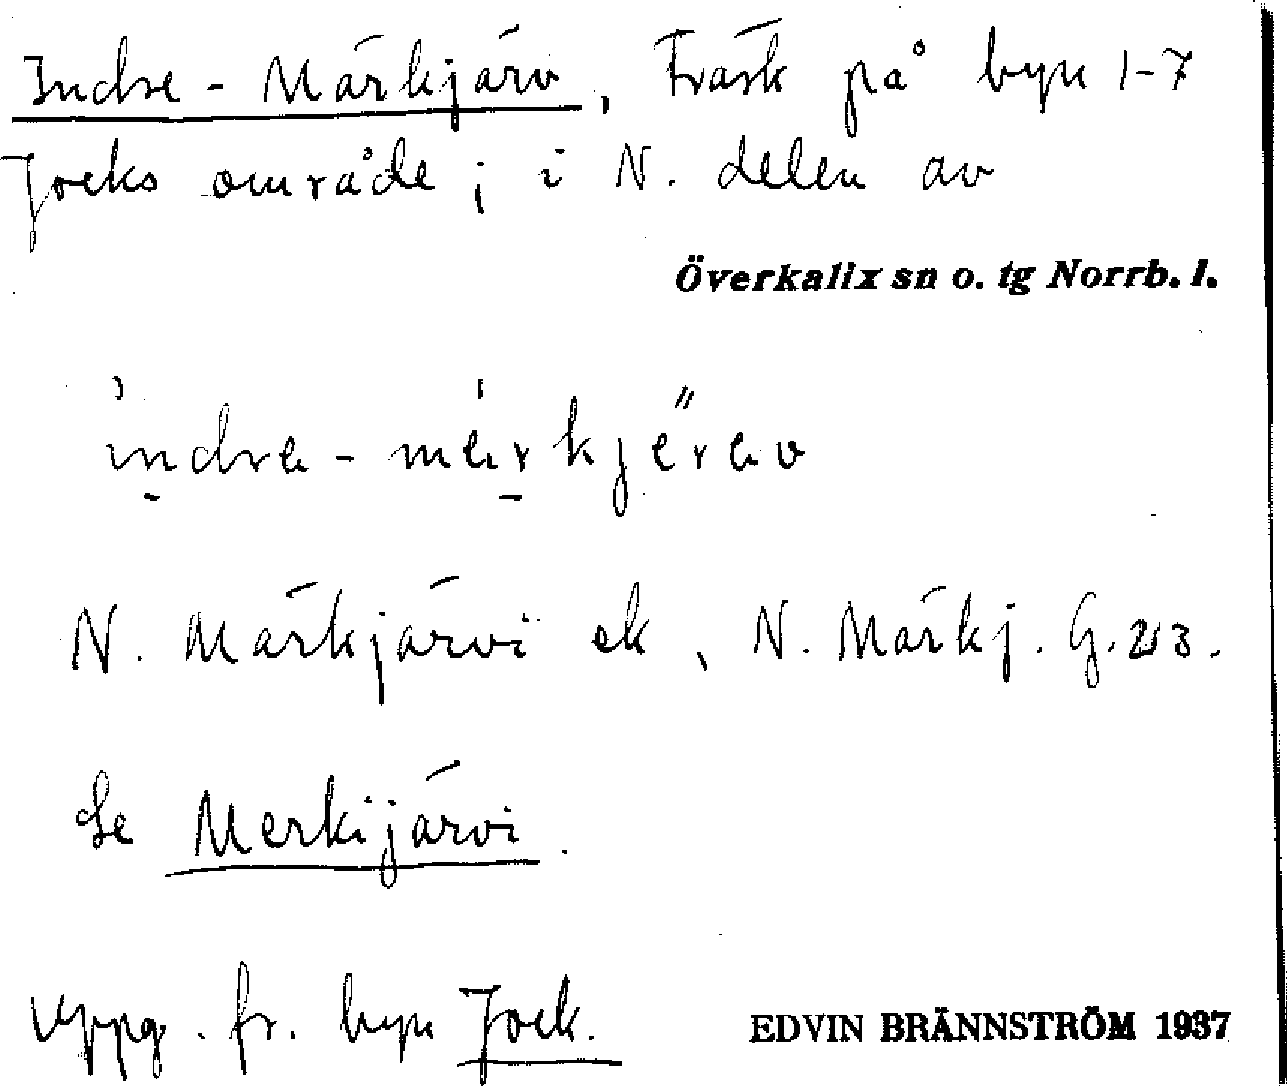 Indre-Märkjärv, Träsk på byn 1-7
Jocks område; i N. delen av
Överkalix sn o. tg Norrb. l.
indra-märkjërav
N. Märkjärvi ek, N. Märkj. G. 213.
Se Merkijärvi.
Uppg. fr. byn Jock.
EDVIN BRÄNNSTRÖM 1937